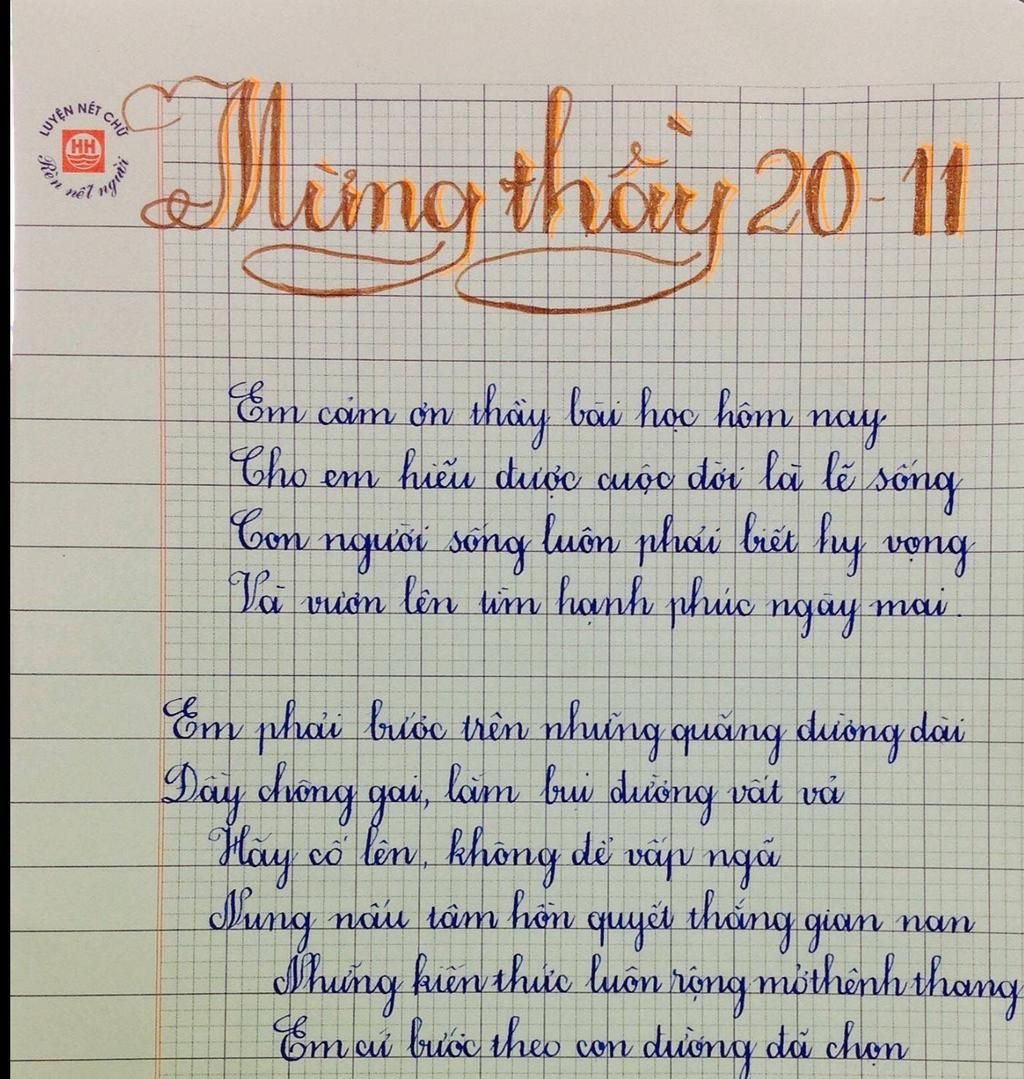 LUYỆN NÉT CHỮ
HH
Rèn nết người
Mừng thầy 20-11
Em cảm ơn thầy bài học hôm nay
Cho em hiểu được cuộc đời là lẽ sống
Con người sống luôn phải biết hy vọng
Và vươn lên tìm hạnh phúc ngày mai.
Em phải bước trên những quãng đường dài
Dẫy chông gai, lắm bụi đường vất vả
Hãy cố lên, không để vấp ngã
Nung nấu tâm hồn quyết thắng gian nan
Những kiến thức luôn rộng mở thênh thang
Em cứ bước theo con đường đã chọn